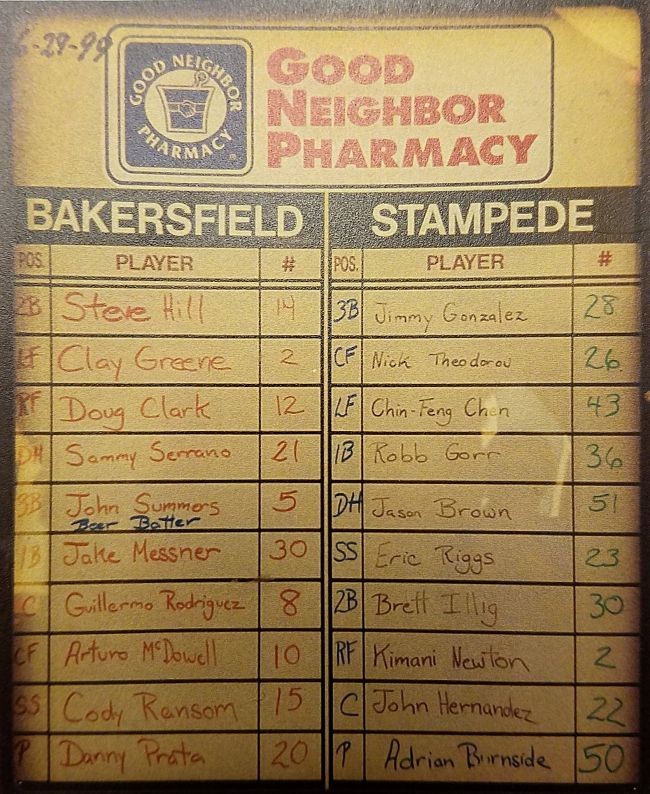 6-29-99
GOOD NEIGHBOR PHARMACY ®
GOOD
NEIGHBOR
PHARMACY
BAKERSFIELD STAMPEDE
POS. PLAYER # POS. PLAYER #
2B Steve Hill 14 3B Jimmy Gonzalez 28
LF Clay Greene 2 CF Nick Theodorou 26
RF Doug Clark 12 LF Chin-Feng Chen 43
DH Sammy Serrano 21 1B Robb Gorr 36
3B John Summers 5 DH Jason Brown 51
Beer Batter
1B Jake Messner 30 SS Eric Riggs 23
C Guillermo Rodriguez 8 2B Brett Illig 30
CF Arturo McDowell 10 RF Kimani Newton 2
SS Cody Ransom 15 C John Hernandez 22
P Danny Prata 20 P Adrian Burnside 50